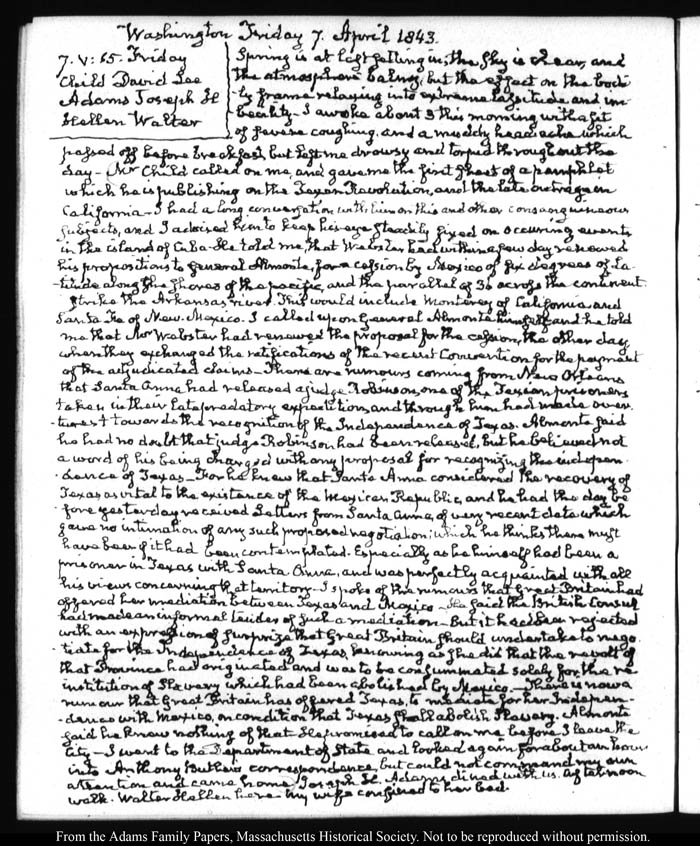 Washington Friday 7. April 1843.
7. V: 55. Friday
Child David Lee
Adams Joseph H
Hellen Walter
Spring is at last setting in, the sky is clear, and
the atmosphere balmy, but the effect on the bodi-
ly frame relaxing into extreme lassitude and im-
becility. I awoke about 3 this morning with a fit
of severe coughing, and a muddy headache which
passed off before breakfast, but left me drowsy and torpid throughout the
day— Mr Child called on me, and gave me the first sheet of a pamphlet
which he is publishing on the Texan Revolution, and the late outrage in
California—I had a long conversation with him on this and other consanguineous
subjects, and I advised him to keep his eye steadily fixed on occurring events
in the island of Cuba. He told me, that Webster had within a few days renewed
his propositions to General Almonte, for a cession by Mexico of six degrees of La-
titude along the shores of the pacific, and the parallel of 36 across the continent
strike the Arkansas river. This would include Monterey of California and
Santa Fe of New Mexico. I called upon General Almonte himself, and he told
me that Mr Webster had renewed the proposal for the cession, the other day,
when they exchanged the ratifications of the recent Convention for the payment
of the adjudicated claims—There are rumours coming from New Orleans
that Santa Anna had released a judge Robinson, one of the Texian prisoners
taken in their late predatory expedition, and through him had made over-
tures towards the recognition of the Independence of Texas. Almonte said
he had no doubt that judge Robinson had been released, but he believed not
a word of his being charged with any proposal for recognizing the indepen-
dence of Texas—For he knew that Santa Anna considered the recovery of
Texas as vital to the existence of the Mexican Republic, and he had the day be-
fore yesterday received Letters from Santa Anna, of very recent date which
gave no intimation of any such proposed negotiation; which he thinks there must
have been if it had been contemplated. Especially as he himself had been a
prisoner in Texas with Santa Anna, and was perfectly acquainted with all
his views concerning that territory—I spoke of the rumours that Great Britain had
offered her mediation between Texas and Mexico—He said the British Consul
had made an informal tender of such a mediation—But it had been rejected
with an expression of surprize that Great Britain should undertake to nego-
tiate for the Independence of Texas, knowing as she did that the revolt of
that Province had originated and was to be consummated solely for the re-
institution of Slavery which had been abolished by Mexico—There is now a
rumour that Great Britain has offered Texas, to mediate for her Indepen-
dence with Mexico, on condition that Texas shall abolish Slavery. Almonte
said he knew nothing of that. He promised to call on me before I leave the
City—I went to the Department of State and looked again for about an hour
into Anthony Butler's correspondence, but could not command my own
attention and came home. Joseph H. Adams dined with us. Afternoon
walk. Walter Hellen here—My wife confined to her bed.
From the Adams Family Papers, Massachusetts Historical Society. Not to be reproduced without permission.